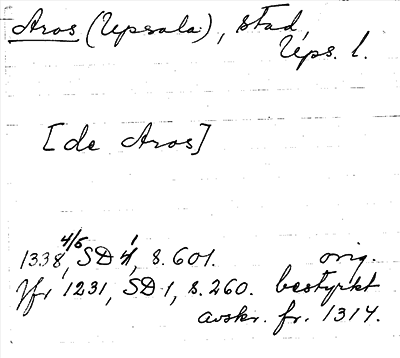 Aros (Upsala), stad,
Ups. l.
[de Aros]
1338 4/6, SD 4, s. 601. orig.
Jfr 1231, SD 1, s. 260. bestyrkt
avskr. fr. 1314.